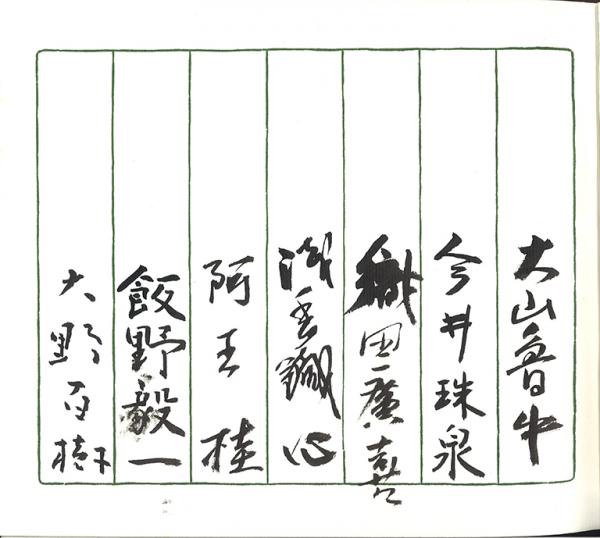 大山魯牛
今井珠泉
織田廣喜
浅香鉄心
阿王桂
飯野毅一
大野百樹